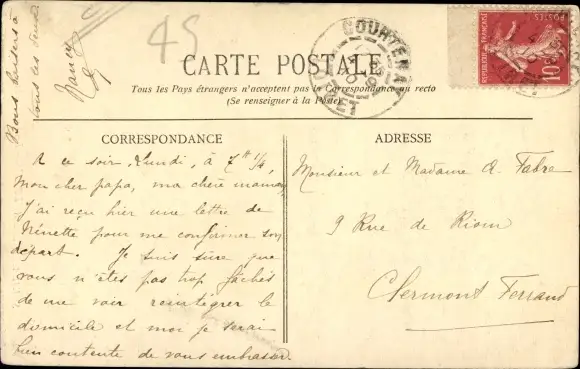 Bons baisers à
tous les deux
Nancy
45
COURTENAY
LOIRET
POSTES
REPUBLIQUE FRANÇAISE
10
CARTE POSTALE
Tous les Pays étrangers n'acceptent pas la Correspondance au recto
(Se renseigner à la Poste)
CORRESPONDANCE
A ce soir, Lundi, à 7 H 1/4,
mon cher papa, ma chère maman,
J'ai reçu hier une lettre de
Ninette pour me confirmer son
départ. Je suis sûre que
vous n'êtes pas trop fâchés
de me voir reintégrer le
domicile et moi je serai
bien contente de vous embrasser.
ADRESSE
Monsieur et Madame A. Fabre
9 Rue de Riom
Clermont Ferrand